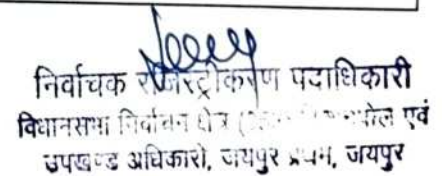 निर्वाचक रजिस्ट्रीकरण पदाधिकारी
विधानसभा निर्वाचन क्षेत्र ( एवं
उपखण्ड अधिकारी, जयपुर प्रथम, जयपुर